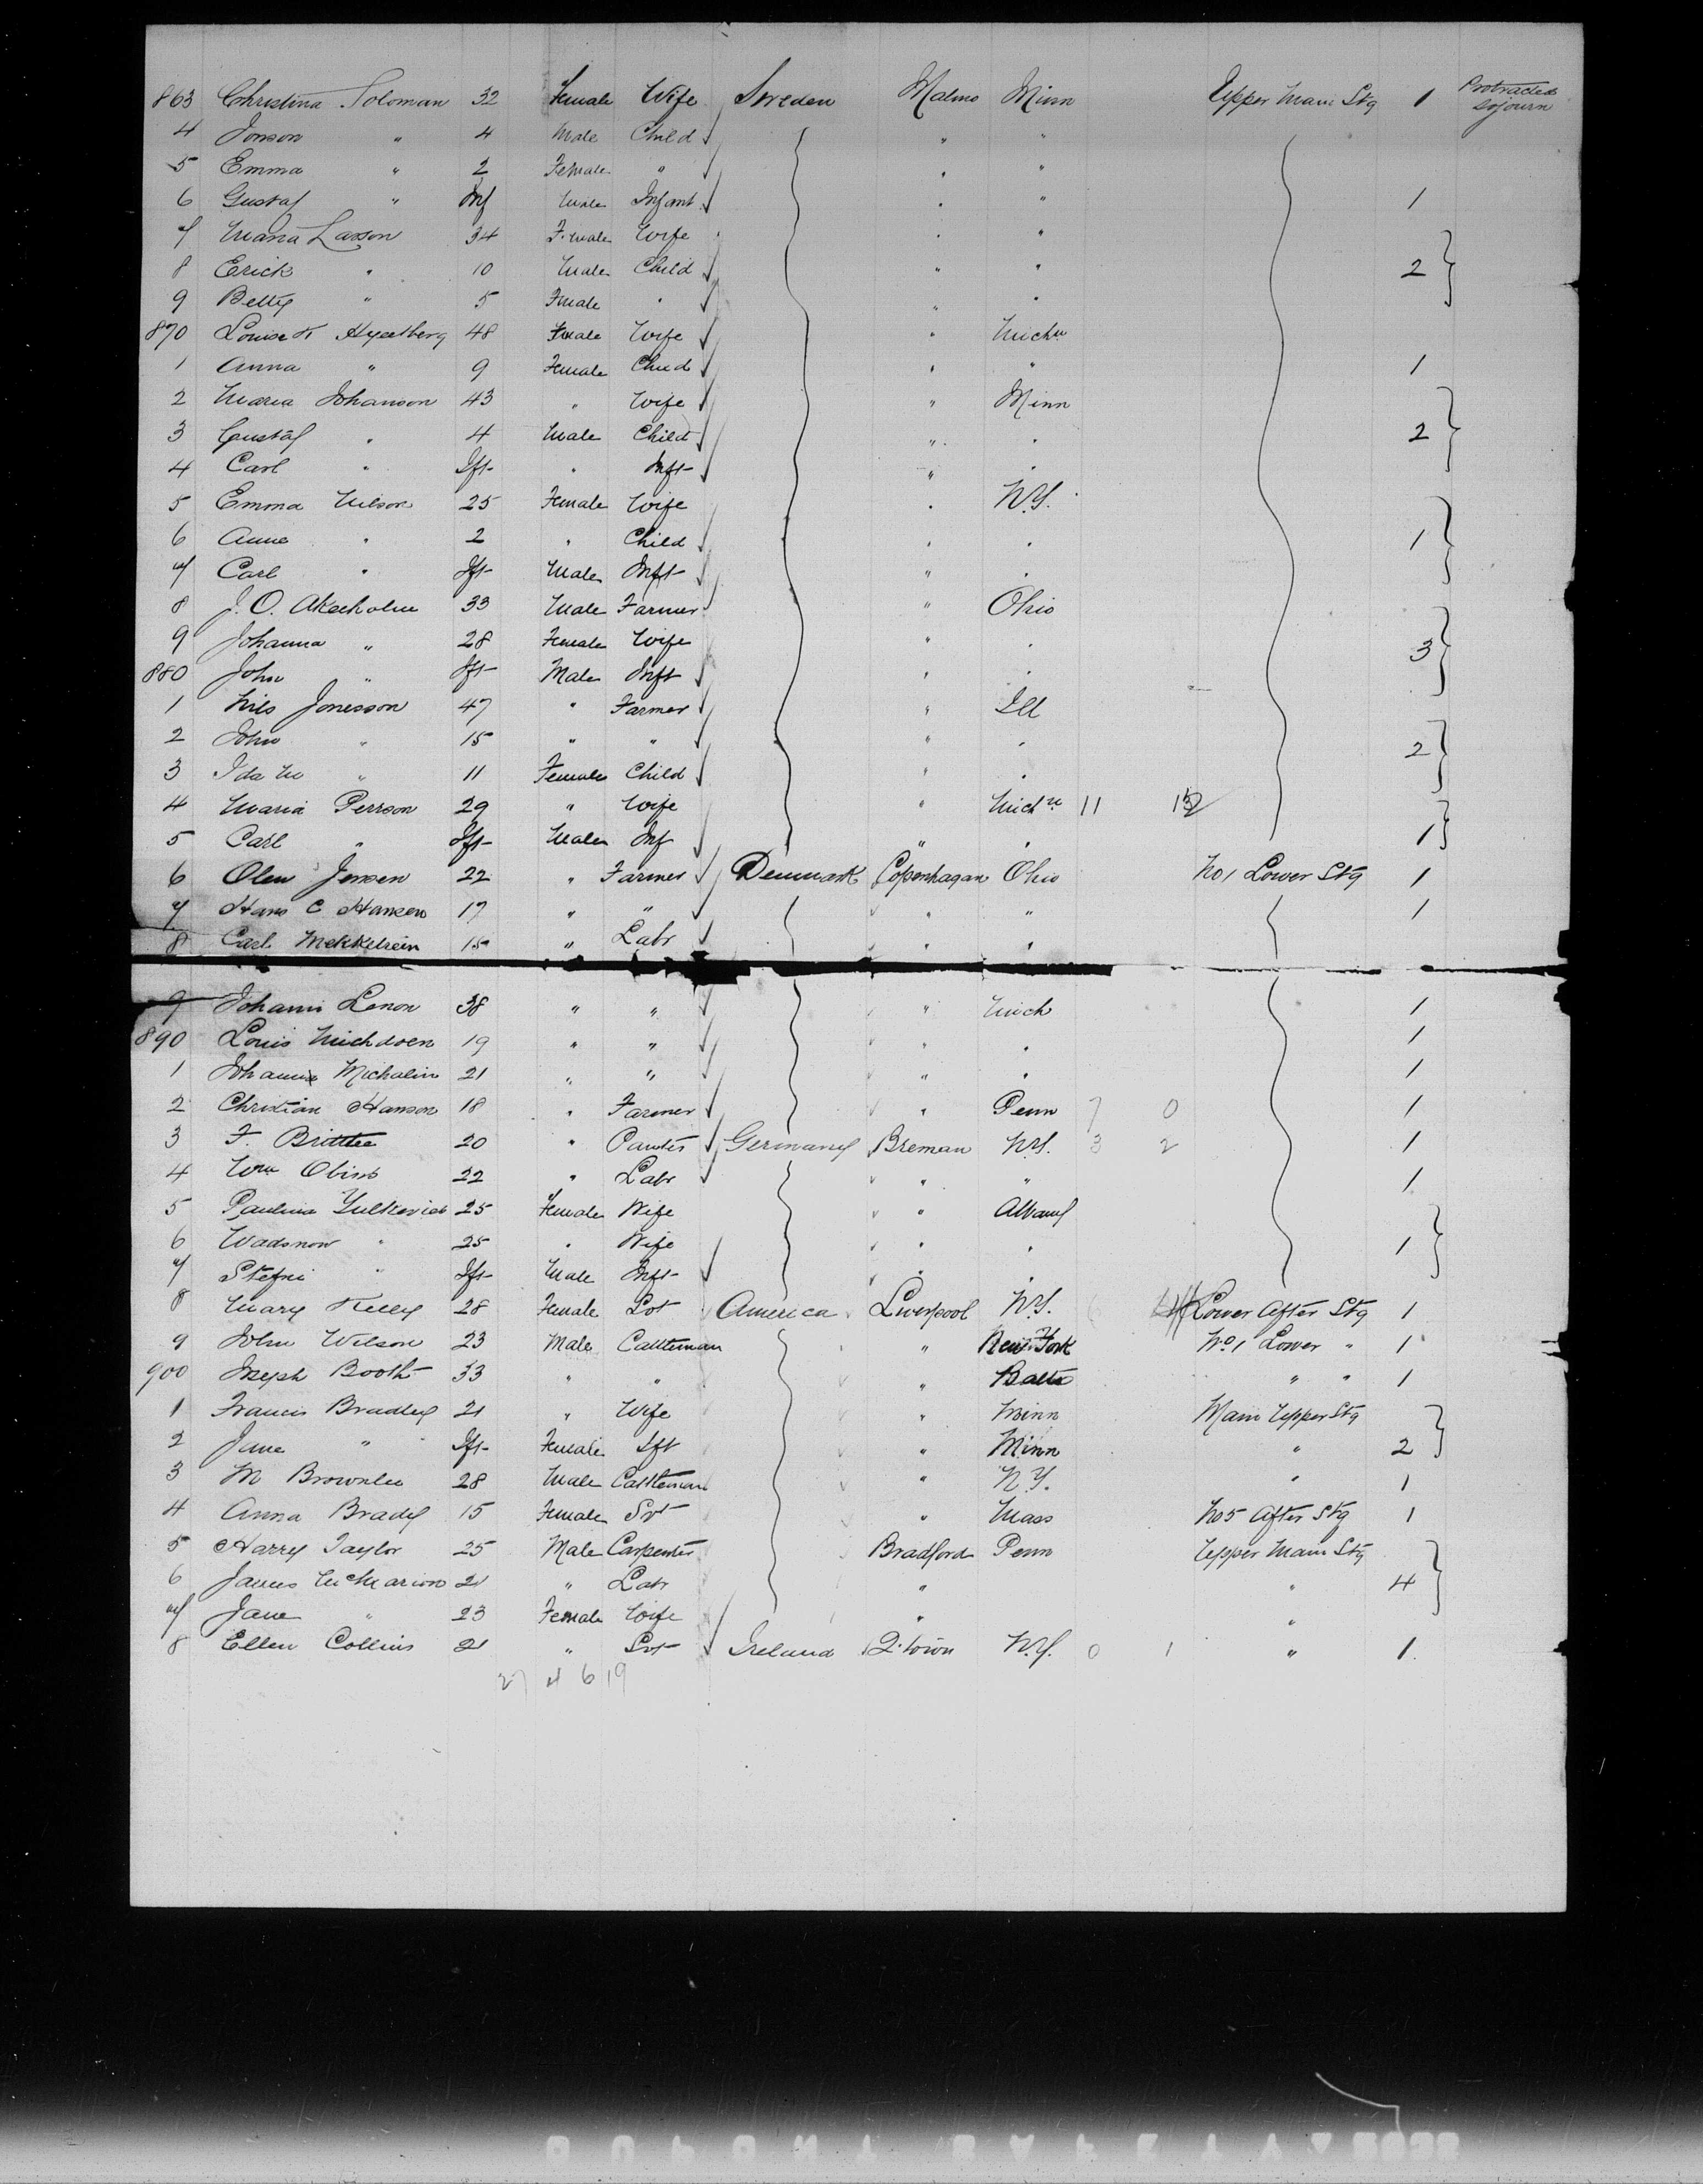 863 Christina Soloman 32 Female Wife Sweden Malmo Minn Upper Main Stg 1 Protracted sojourn
4 Jonson " 4 Male Child " "
5 Emma " 2 Female " " "
6 Gustaf " Inf Male Infant " " 1
7 Maria Lasson 34 Female Wife " "
8 Erick " 10 Male Child " " 2
9 Betty " 5 Female " " "
870 Louise K 48 Female Wife " Michn
1 Anna " 9 Female Child " " 1
2 Maria Johanson 43 " Wife " Minn
3 Gustaf " 4 Male Child " " 2
4 Carl " Ift " Inft " "
5 Emma Nilson 25 Female Wife " N.Y.
6 Anna " 2 " Child " " 1
7 Carl " Ift Male Inft " "
8 J. O. Akerholm 33 Male Farmer " Ohio
9 Johanna " 28 Female Wife " " 3
880 John " Ift Male Inft " "
1 Nils Jonsson 47 " Farmer " Ill
2 John " 15 " " " " 2
3 Ida M " 11 Female Child " "
4 Maria Perrson 29 " Wife " Michn 11
5 Carl " Ift Male Inf " " 1
6 Olen Jensen 22 " Farmer Denmark Copenhagan Ohio No 1 Lower Stg 1
7 Hans C Hansen 17 " " " " 1
8 Carl 15 " Labr " "
9 Johann Lenon 38 " " " Mich 1
890 Louis 19 " " " " 1
1 Michalin 21 " " " " 1
2 Christian Hanson 18 " Farmer " Penn 7 0 1
3 F. 20 " Germany Breman N.Y. 3 2 1
4 Wm 22 " Labr " " 1
5 Paulina 25 Female Wife " Albany
6 " 25 " Wife " " 1
7 " Ift Male Inft " "
8 Mary Kelly 28 Female America Liverpool N.Y. Lower After Stg 1
9 John Wilson 23 Male Cattleman " New York No 1 Lower " 1
900 Joseph Booth 33 " " " Balto " " 1
1 Francis Bradley 21 " Wife " Minn Main Upper Stg
2 Jane " Ift Female Ift " Minn " 2
3 M Brownlee 28 Male Cattleman " N.Y. " 1
4 Anna Brady 15 Female Svt " Mass No 5 After Stg 1
5 Harry Taylor 25 Male Carpenter Bradford Penn Upper Main Stg
6 James 21 " Labr " " 4
7 Jane " 23 Female Wife " "
8 Ellen Collins 21 " Svt Ireland Q. town N.Y. 0 1 " 1
27 4 6 19